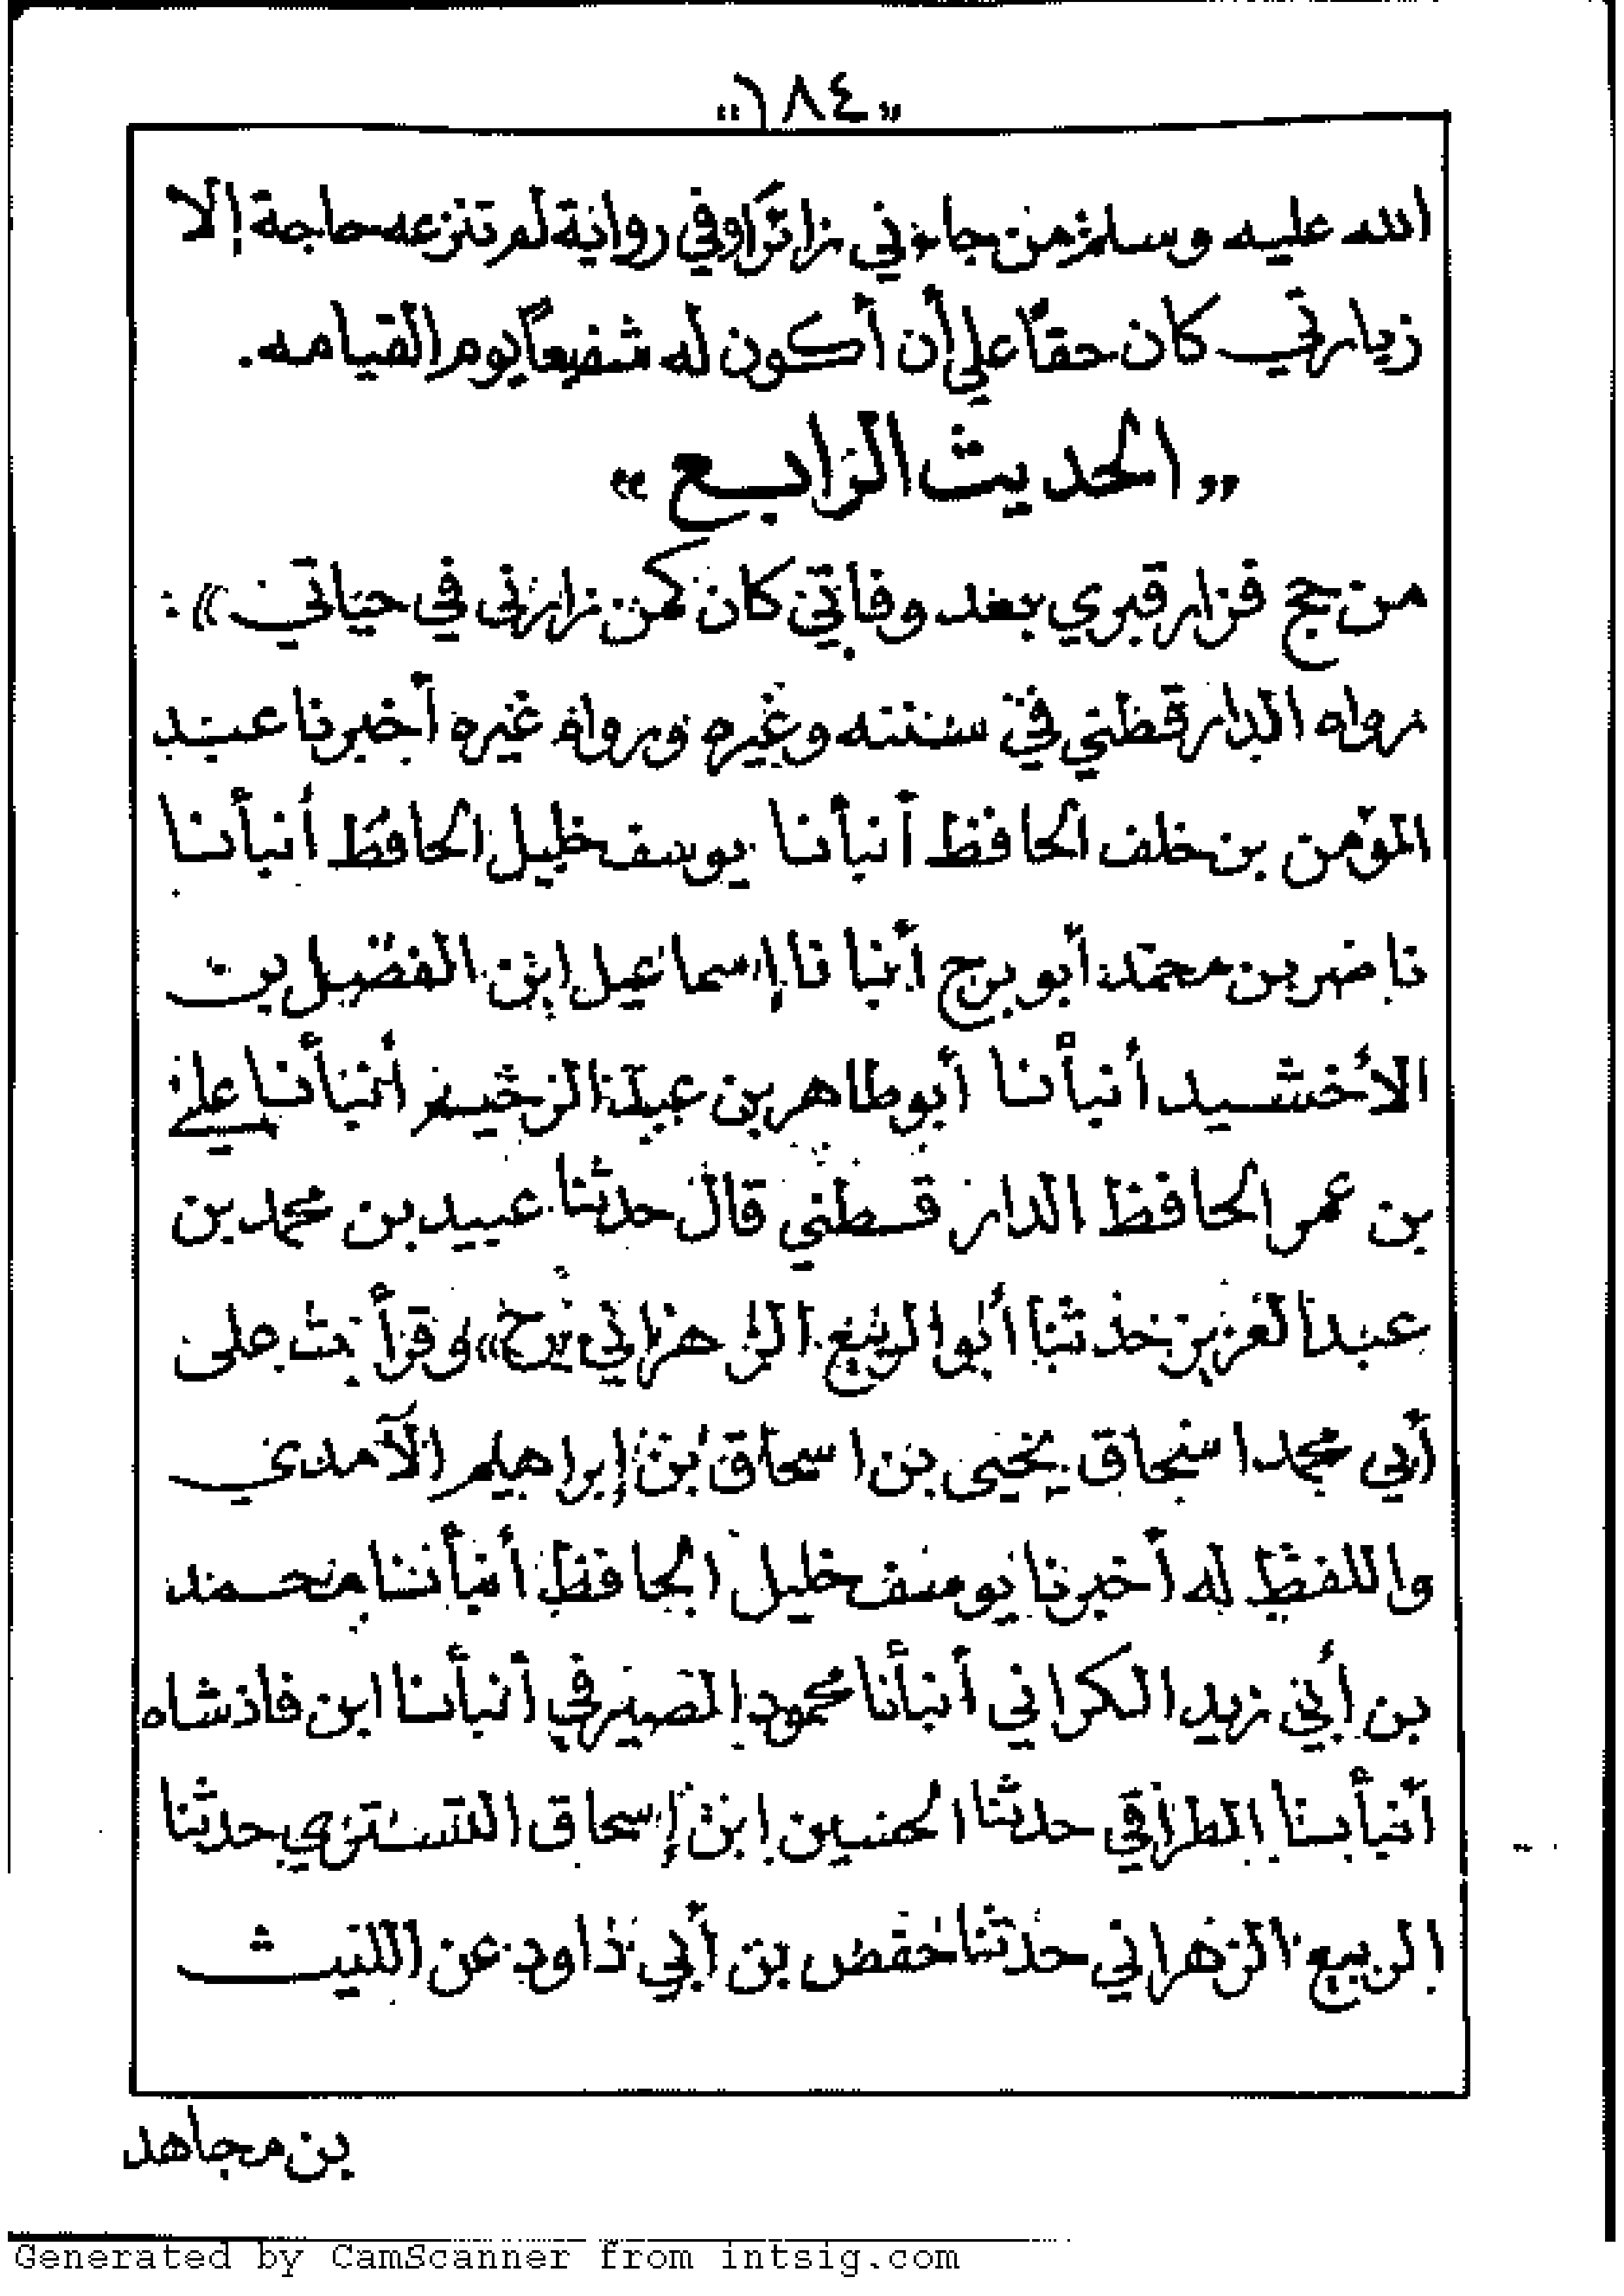 «١٨٤»
الله عليه وسلم من جاءني زائرًا وفي رواية لم تنزعه حاجة إلا
زيارتي كان حقاً علي أن أكون له شفيعاً يوم القيامه.
«الحديث الرابع»
من حج فزار قبري بعد وفاتي كان كمن زارني في حياتي»:
رواه الدارقطني في سننه وغيره ورواه غيره أخبرنا عبد
المؤمن بن خلف الحافظ أنبأنا يوسف خليل الحافظ أنبأنا
ناصر بن محمد أبو برج أنبا نا إسماعيل ابن الفضل بن
الأخشيد أنبأنا أبو طاهر بن عبد الرحيم أنبأنا علي
بن عمر الحافظ الدار قطني قال حدثنا عبيد بن محمد بن
عبد العزيز حدثنا أبو الربيع الزهراني «ح» وقرأت على
أبي محمد اسحاق يحيى بن اسحاق بن إبراهيم الآمدي
واللفظ له أخبرنا يوسف خليل الحافظ أنبأنا محمد
بن أبي زيد الكراني أنبأنا محمود الصيرفي أنبأنا ابن فاذشاه
أنبأنا الطراقي حدثنا الحسين ابن إسحاق التستري حدثنا
الربيع الزهراني حدثنا حفص بن أبي داود عن الليث
بن مجاهد
Generated by CamScanner from intsig.com